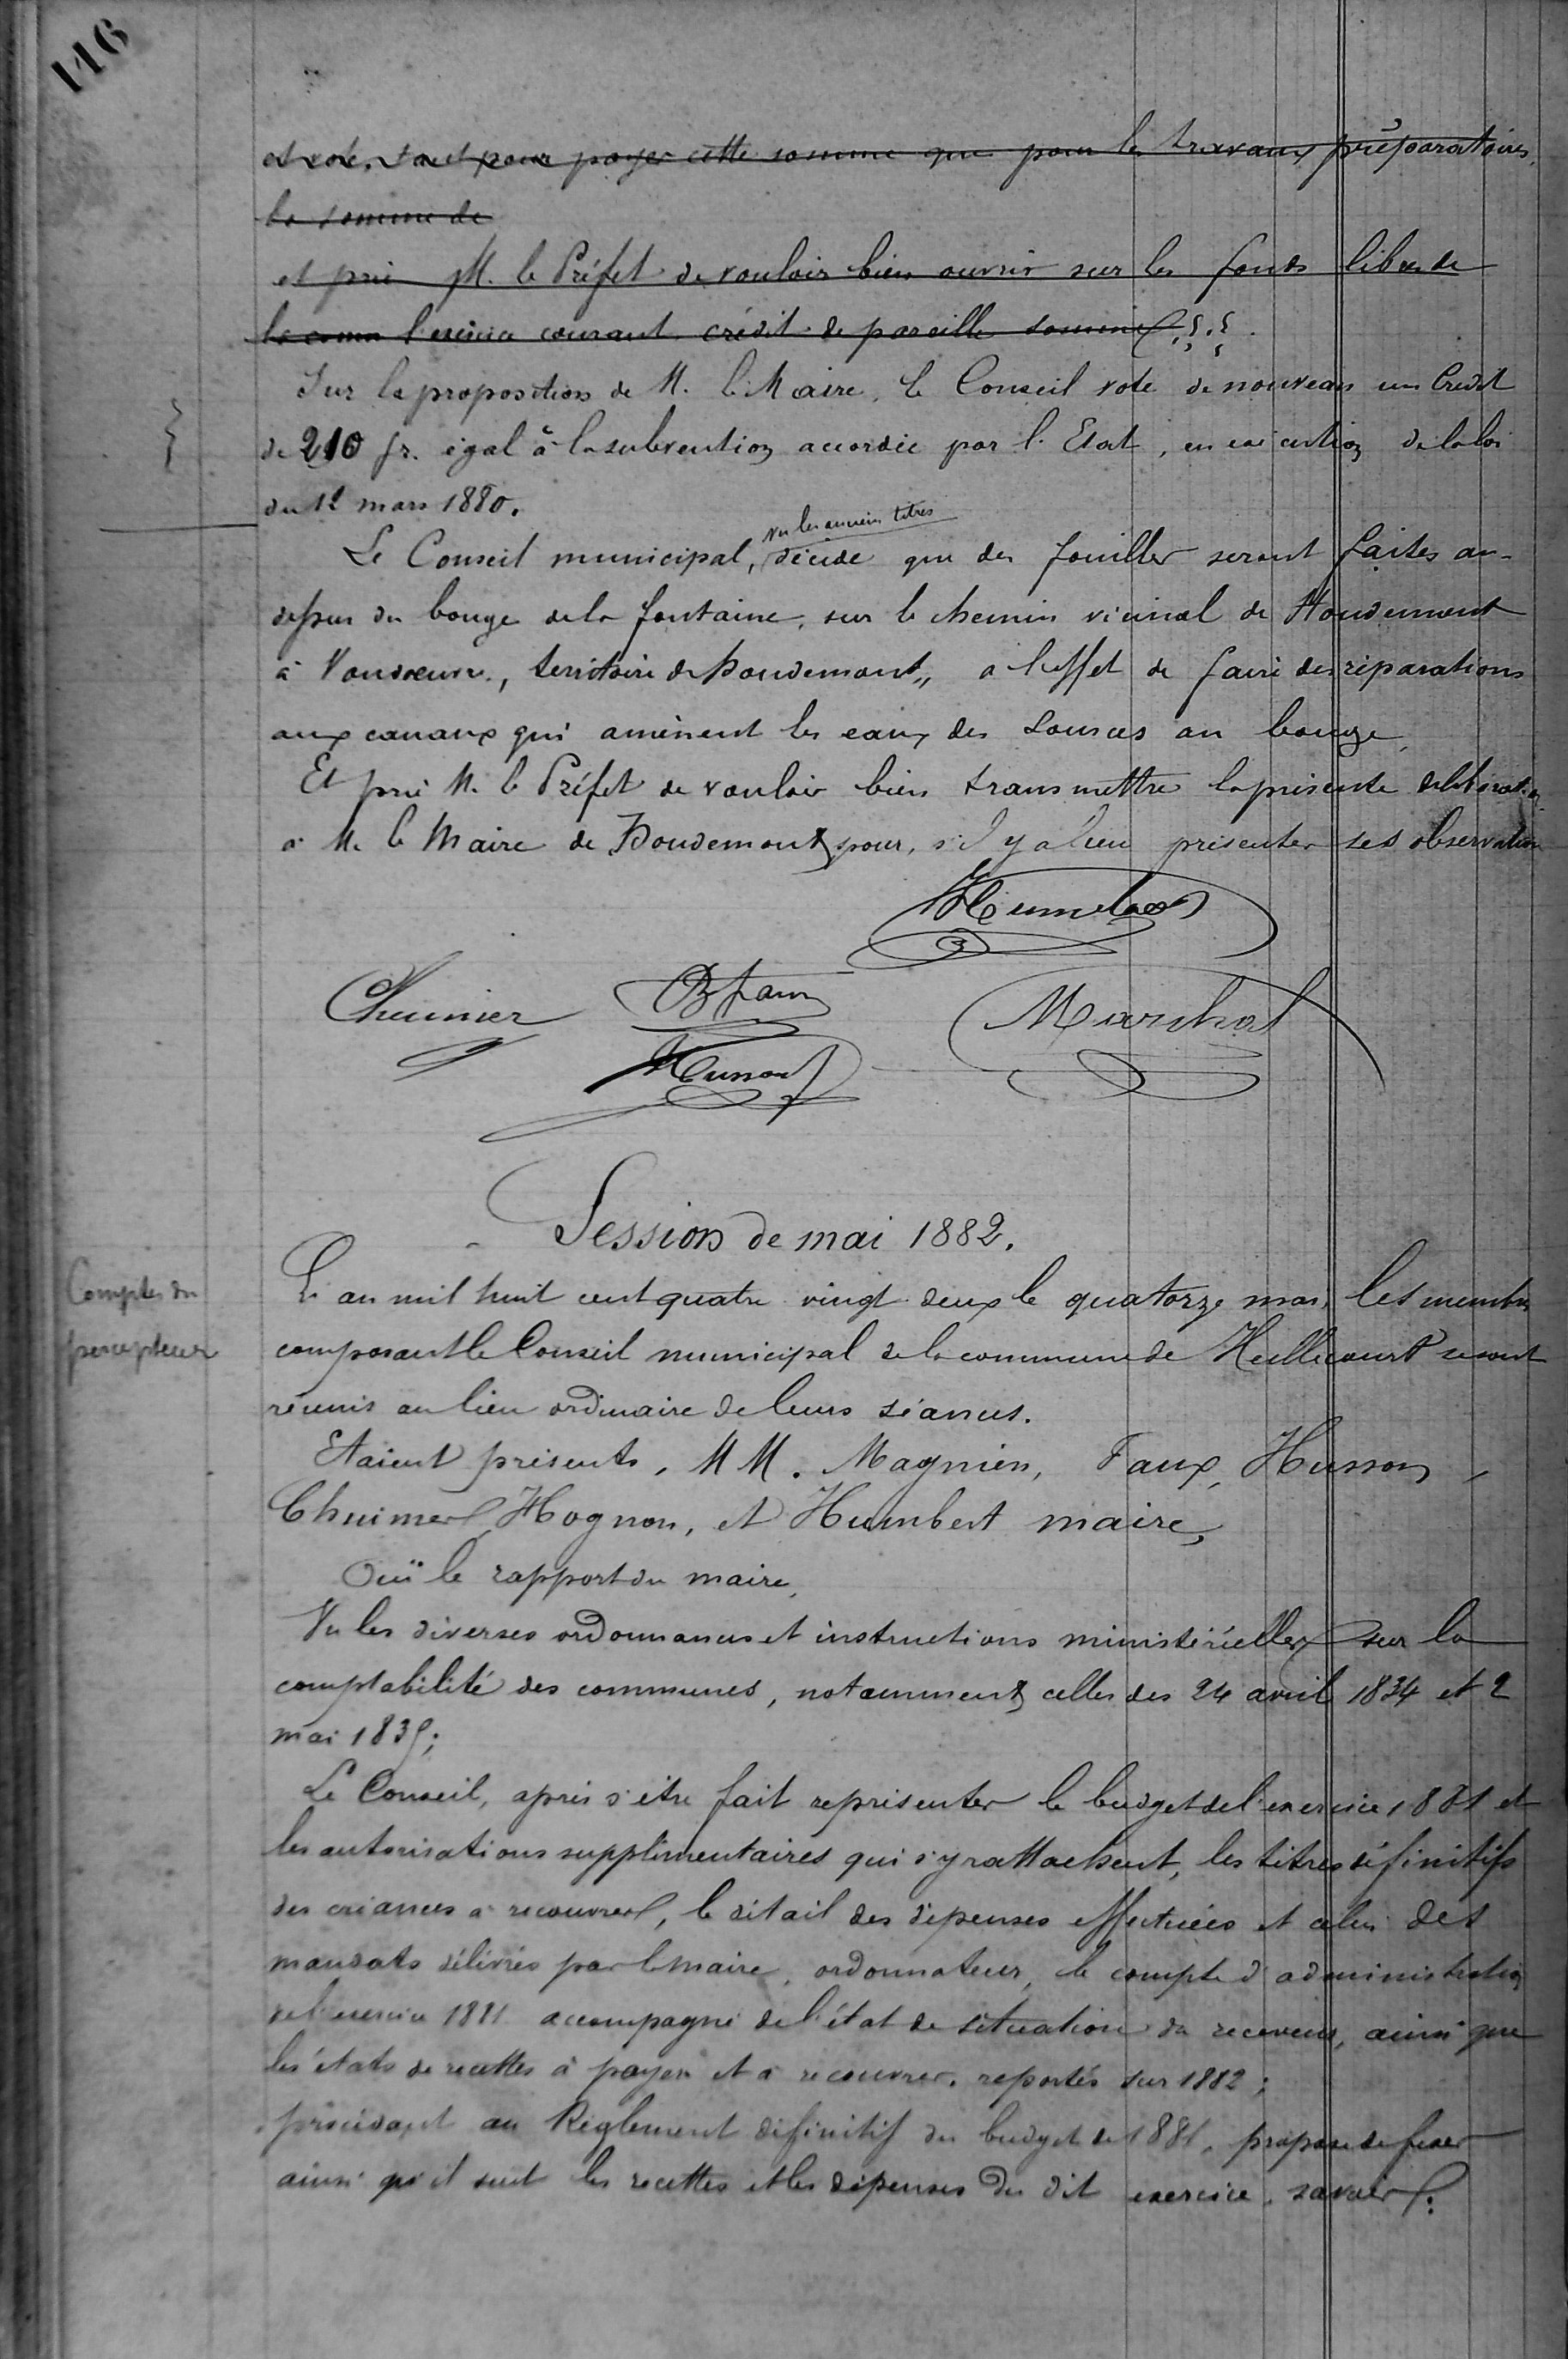 116
et vote, tant pour payer cette somme que pour les travaux préparatoires,
la somme de
et prie M. le Préfet de vouloir bien ouvrir sur les fonds libres de
la comm l'exercice courant crédit de pareille somme
Sur la proposition de M. le Maire, le Conseil vote de nouveau un Crédit
de 210 fr. égal à la subvention accordée par l'Etat, en exécution de la loi
du 12 mars 1880.
vu les anciens titres
Le Conseil municipal, décide que des fouilles seront faites au-
dessus du bouge de la fontaine, sur le chemin vicinal de Houdemont
à Vandœuvre, territoire de Houdemont, a l'effet de faire des réparations
aux canaux qui amènent les eaux des sources au bouge.
Et prie M. le Préfet de vouloir bien transmettre la présente délibération
à M. le Maire de Houdemont pour, s'il y a lieu présenter ses observation
Humbert
Chuimer Faux Marchal
Husson
Session de mai 1882.
Comptes du
percepteur
L'an mil huit cent quatre vingt deux le quatorze mai, les membres
composant le Conseil municipal de la commune de Heillecourt se sont
réunis au lieu ordinaire de leurs séances.
Etaient présents, MM. Magnien, Faux, Husson,
Chuimer, Hognon, et Humbert maire,
Ouï le rapport du maire,
Vu les diverses ordonnances et instructions ministérielles sur la
comptabilité des communes, notamment celles des 24 avril 1834 et 2
mai 1835;
Le Conseil, après s'être fait représenter le budget de l'exercice 1881 et
les autorisations supplémentaires qui s'y rattachent, les titres définitifs
des créances à recouvrer, le détail des dépenses effectuées et celui des
mandats délivrés par le maire, ordonnateur, le compte d'administration
de l'exercice 1881 accompagné de l'état de situation du receveur, ainsi que
les états de recettes à payer et à recouvrer, reportés sur 1882;
procédant au Règlement définitif du budget de 1881, propose de fixer
ainsi qu'il suit les recettes et les dépenses du dit exercice, savoir: